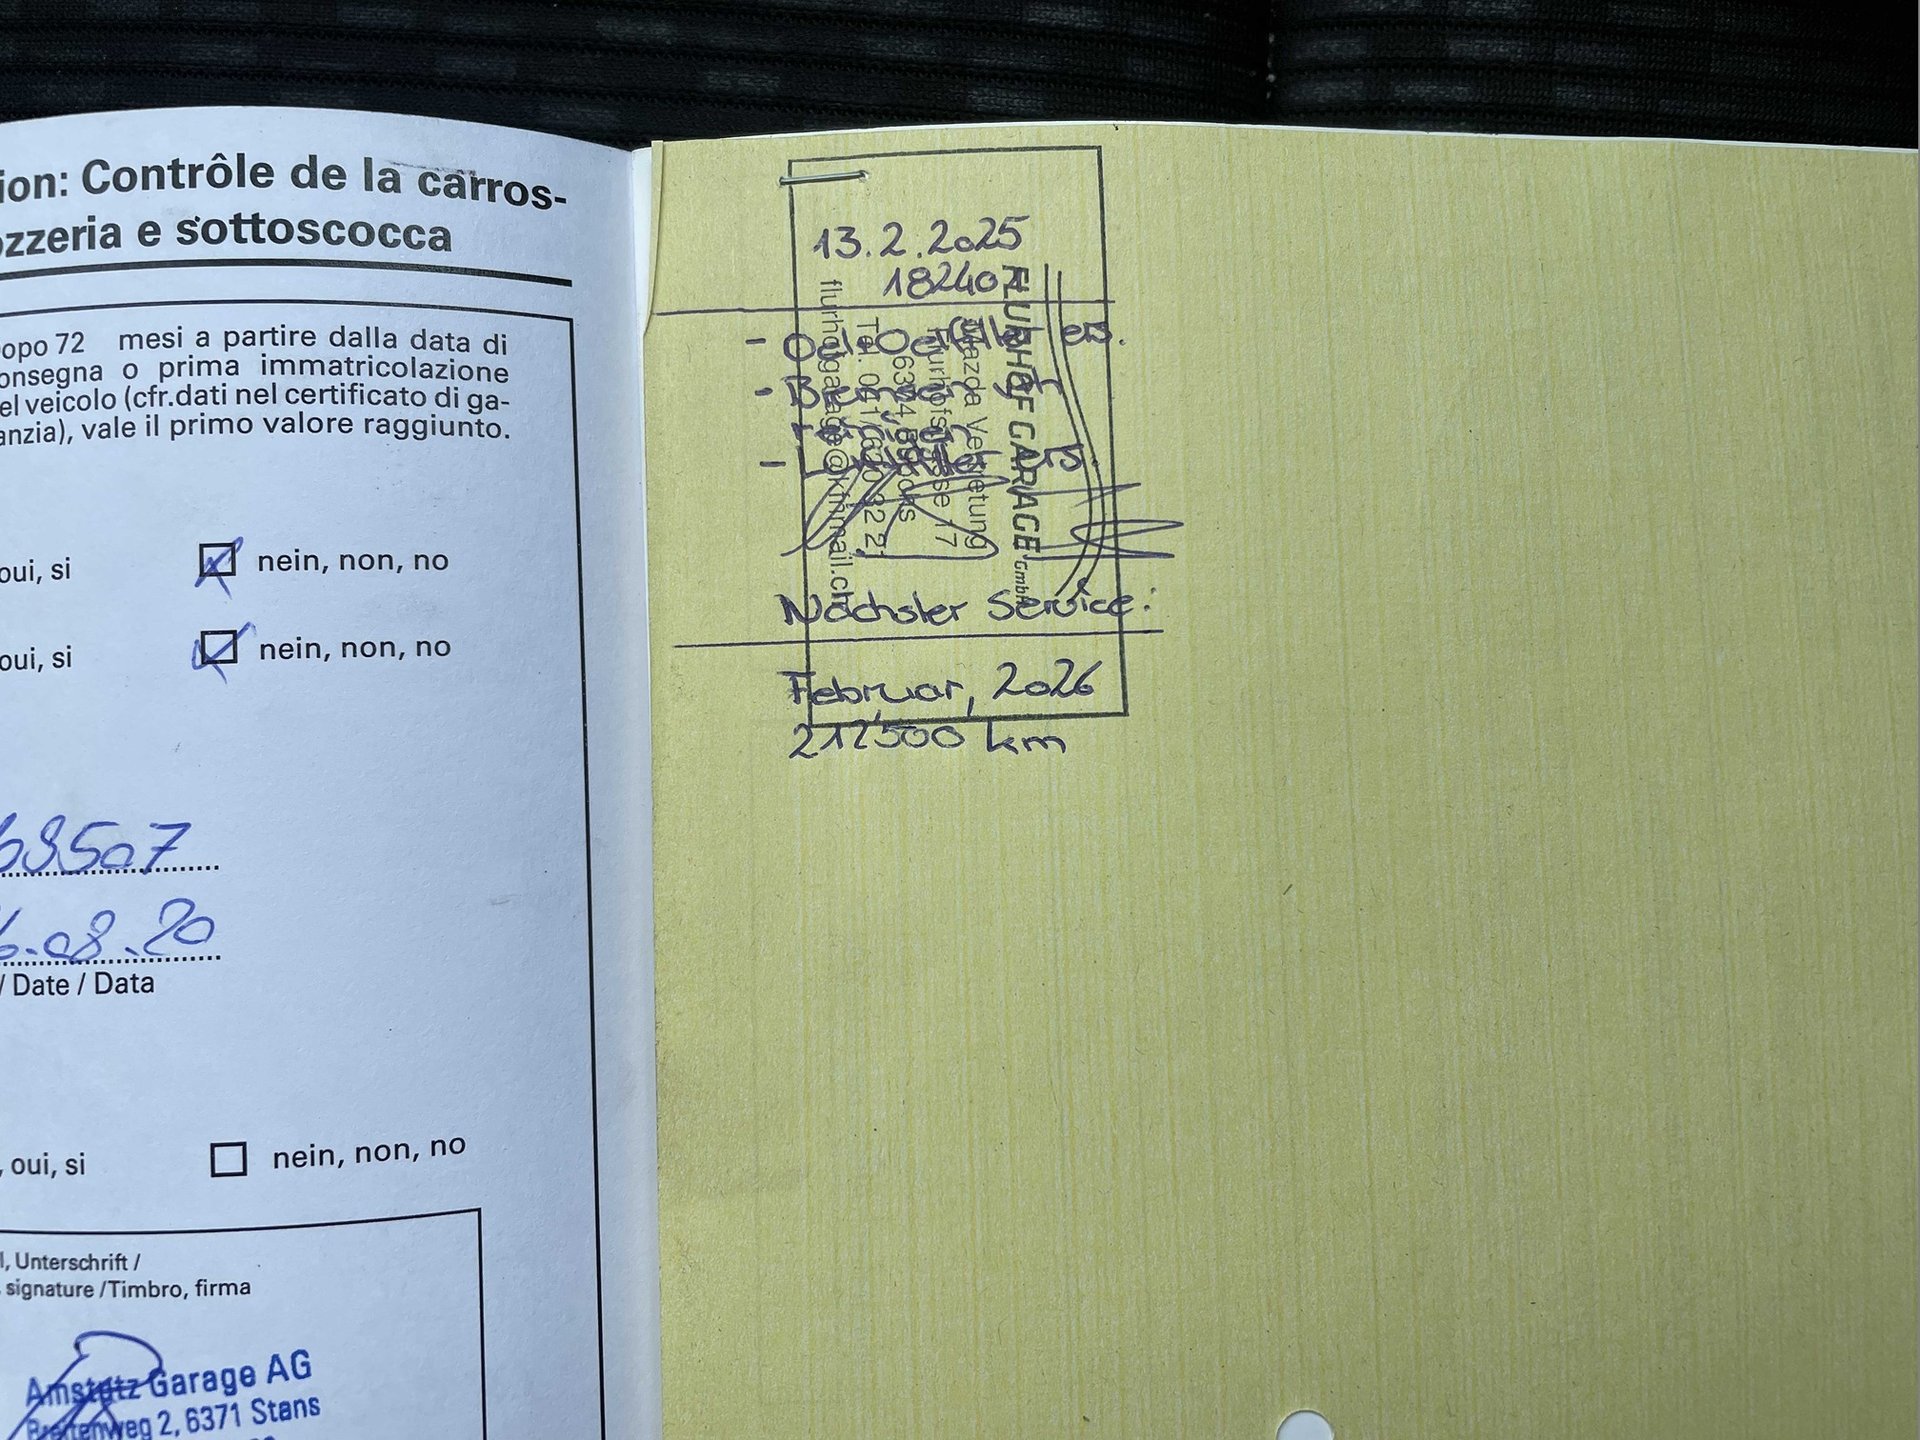 ion: Contrôle de la carros-
ozzeria e sottoscocca
opo 72 mesi a partire dalla data di
onsegna o prima immatricolazione
el veicolo (cfr.dati nel certificato di ga-
anzia), vale il primo valore raggiunto.
oui, si nein, non, no
oui, si nein, non, no
69507
6.08.20
/ Date / Data
, oui, si nein, non, no
l, Unterschrift /
signature /Timbro, firma
Amstutz Garage AG
Breitenweg 2, 6371 Stans
13.2.2025
182407
- Oel+Oelfilter ers.
- Bremsen
- Luftfilter ers
Nächster Service:
Februar, 2026
212500 km
FLURHOF GARAGE GmbH
Mazda Vertretung
Flurhofstrasse 17
flurhofgarage@kfnmail.ch